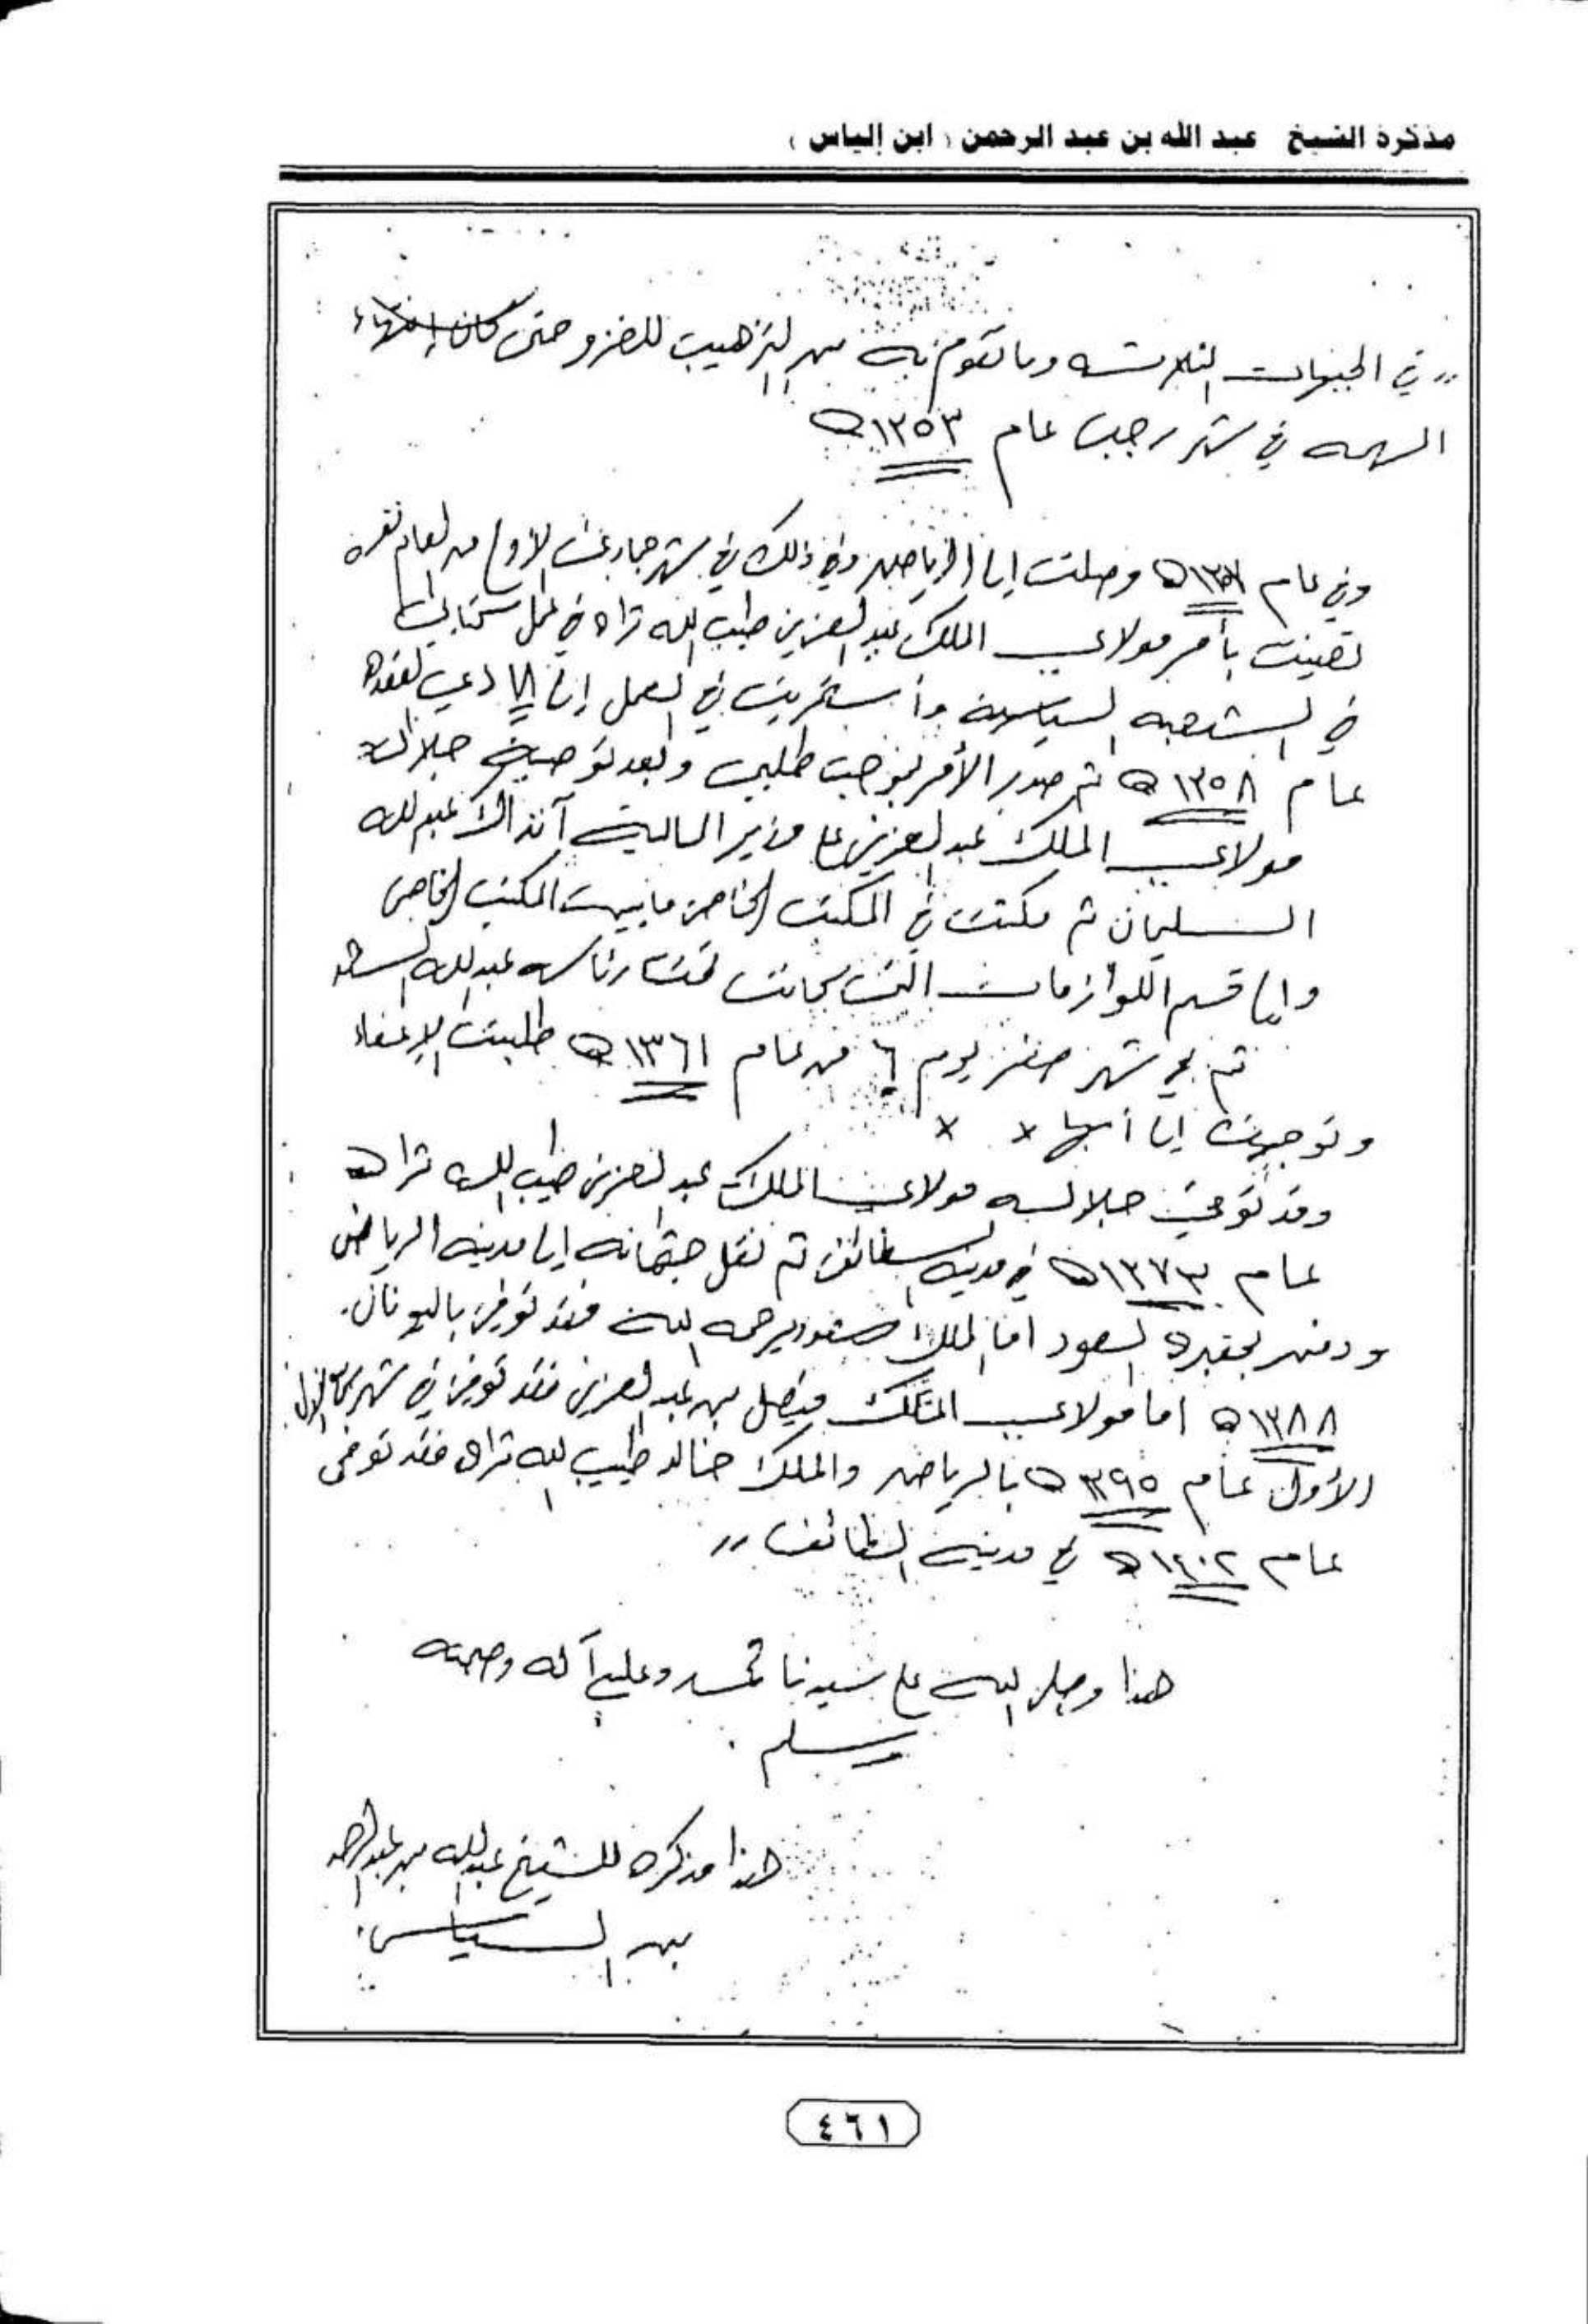 مذكرة الشيخ عبد الله بن عبد الرحمن ( ابن إلياس )
,, في الجبهات الثلاثه وما تقوم به من الترهيب للغزو حتى كان إنتهاء
المهمه في شهر رجب عام ١٣٥٣ ه
وفي عام ه وصلت إلى الرياض وفي ذلك في شهر جمادى الأول من العام نفسه
تعينت بأمر مولاي الملك عبد العزيز طيب الله ثراه في عمل كتابي
في الشعبه السياسية وأستمريت في العمل إلى القعده
عام ١٣٥٨ ه ثم صدر الأمر بموجب طلبي وبعد توصية جلالة
مولاي الملك عبد العزيز على وزير المالية آنذاك عبد الله
السليمان ثم مكثت في المكتب الخاص ما بين المكتب الخاص
وإلى قسم اللوازمات التي كانت تحت رئاسه عبد الله السعد
ثم في شهر صفر يوم ٦ من عام ١٣٦١ ه طلبت الإعفاء
وتوجهت إلى أبها × ×
وقد توفي جلالة مولاي الملك عبد العزيز طيب الله ثراه
عام ١٣٧٣ ه في مدينة الطائف ثم نقل جثمانه إلى مدينه الرياض
ودفن بمقبرة السعود اما الملك سعود يرحمه الله فقد توفي باليونان.
١٣٨٨ ه اما مولاي الملك فيصل بن عبد العزيز فقد توفي في شهر ربيع الأول
الأول عام ١٣٩٥ ه بالرياض والملك خالد طيب الله ثراه فقد توفى
عام ١٤٠٢ ه في مدينة الطائف ,,
هذا وصلى الله على سيدنا محمد وعلى آله وصحبته
وسلم .
هذا مذكره للشيخ عبد الله بن عبد الرحمن
بن الياس.
٤٦١